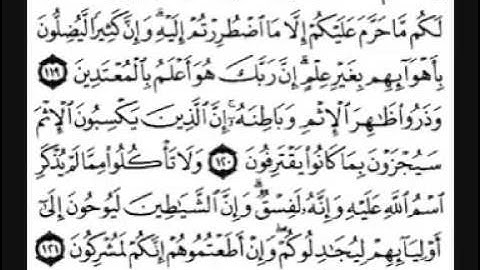 لَكُم مَّا حَرَّمَ عَلَيْكُمْ إِلَّا مَا ٱضْطُرِرْتُمْ إِلَيْهِ ۗ وَإِنَّ كَثِيرًا لَّيُضِلُّونَ
بِأَهْوَآئِهِم بِغَيْرِ عِلْمٍ ۗ إِنَّ رَبَّكَ هُوَ أَعْلَمُ بِٱلْمُعْتَدِينَ ١١٩
وَذَرُوا۟ ظَٰهِرَ ٱلْإِثْمِ وَبَاطِنَهُۥٓ ۚ إِنَّ ٱلَّذِينَ يَكْسِبُونَ ٱلْإِثْمَ
سَيُجْزَوْنَ بِمَا كَانُوا۟ يَقْتَرِفُونَ ١٢٠ وَلَا تَأْكُلُوا۟ مِمَّا لَمْ يُذْكَرِ
ٱسْمُ ٱللَّهِ عَلَيْهِ وَإِنَّهُۥ لَفِسْقٌ ۗ وَإِنَّ ٱلشَّيَٰطِينَ لَيُوحُونَ إِلَىٰٓ
أَوْلِيَآئِهِمْ لِيُجَٰدِلُوكُمْ ۖ وَإِنْ أَطَعْتُمُوهُمْ إِنَّكُمْ لَمُشْرِكُونَ ١٢١